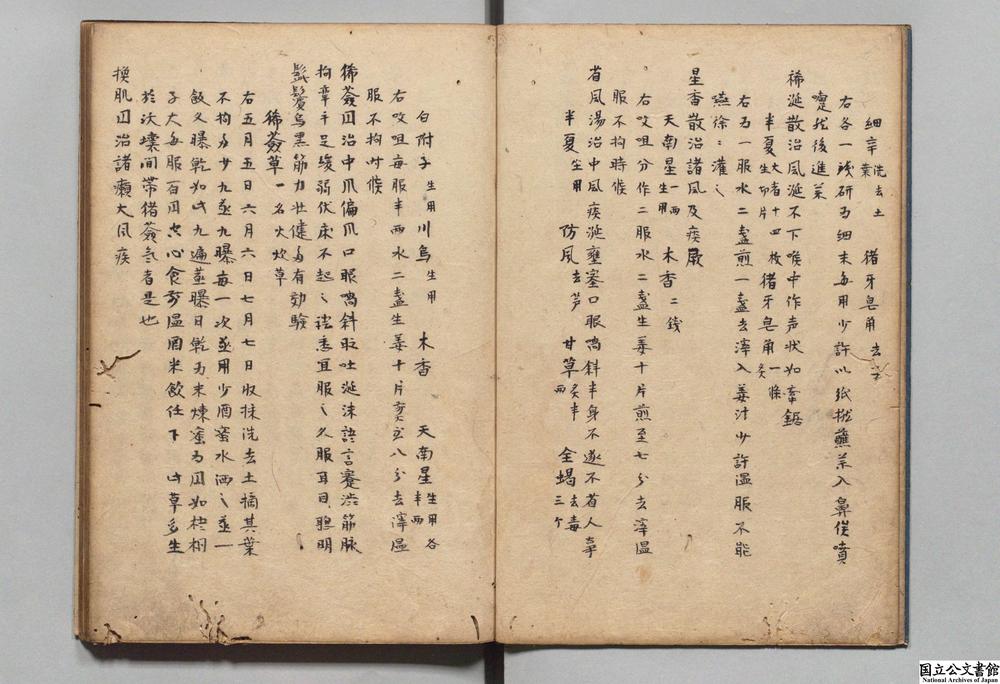 細辛 洗去土葉 猪牙皂角 去子
右各一錢研為細末每用少許以紙撚蘸藥入鼻俟噴
嚏然後進藥
稀涎散治風涎不下喉中作声状如牽鋸
半夏 大者十四枚生切片 猪牙皂角 一條炙
右為一服水二盞煎一盞去滓入姜汁少許温服不能
嚥徐〻灌之
星香散治諸風及痰厥
天南星 一両生用 木香 二錢
右㕮咀分作二服水二盞生姜十片煎至七分去滓温
服不拘時候
省風湯治中風痰涎壅塞口眼喎斜半身不遂不省人事
半夏 生用 防風 去芦 甘草 炙半両 全蝎 去毒三个
白附子 生用 川烏 生用 木香 天南星 生用各半両
右㕮咀每服半両水二盞生姜十片煎至八分去滓温
服不拘时候
稀薟囬治中風偏風口眼喎斜时吐涎沫語言蹇澁筋脉
拘攣手足緩弱伏床不起〻法悉宜服之久服耳目聰明
髭鬢烏黑筋力壮健多有効驗
稀薟草 一名火炊草
右五月五日六月六日七月七日収採洗去土摘其葉
不拘多少九蒸九曝每一次蒸用少酒蜜水洒之蒸一
飯久曝乾如此九遍蒸曝日乾為末煉蜜為囬如梧桐
子大每服百囬空心食前温酒米飲任下 此草多生
於沃壤間帶猪薟氣者是也
換肌囬治諸癩大風疾
国立公文書館
National Archives of Japan